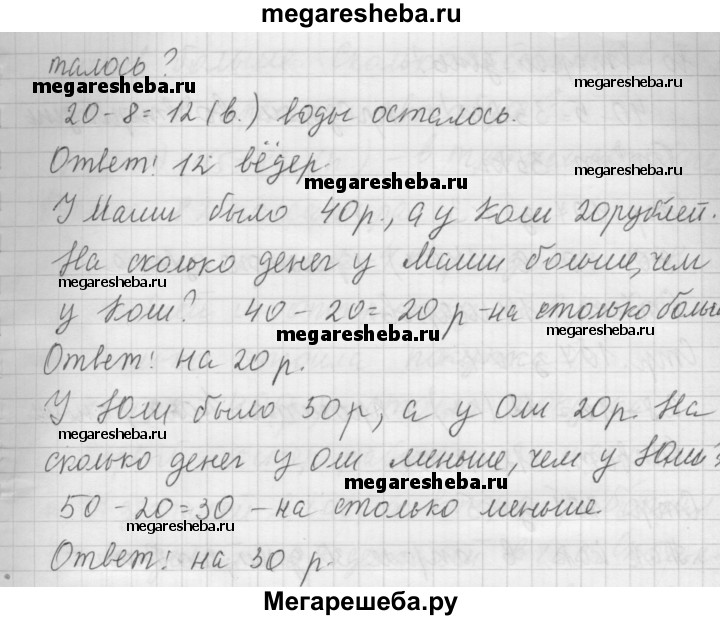 megaresheba.ru
талось?
megaresheba.ru
megaresheba.ru
20-8=12(в.) воды осталось.
Ответ! 12 вёдер.
megaresheba.ru
У Маши было 40р., а у Коли 20рублей.
На сколько денег у Маши больше, чем
megaresheba.ru
megaresheba.ru
у Коли? 40-20=20 р -на столько больш
megaresheba.ru
megaresheba.ru
Ответ! на 20 р.
У Юли было 50р, а у Оли 20р. На
megaresheba.ru
megaresheba.ru
сколько денег у Оли меньше, чем у Юли?
megaresheba.ru
50-20=30 -на столько меньше.
megaresheba.ru
megaresheba.ru
Ответ! на 30 р.
Мегарешеба.ру